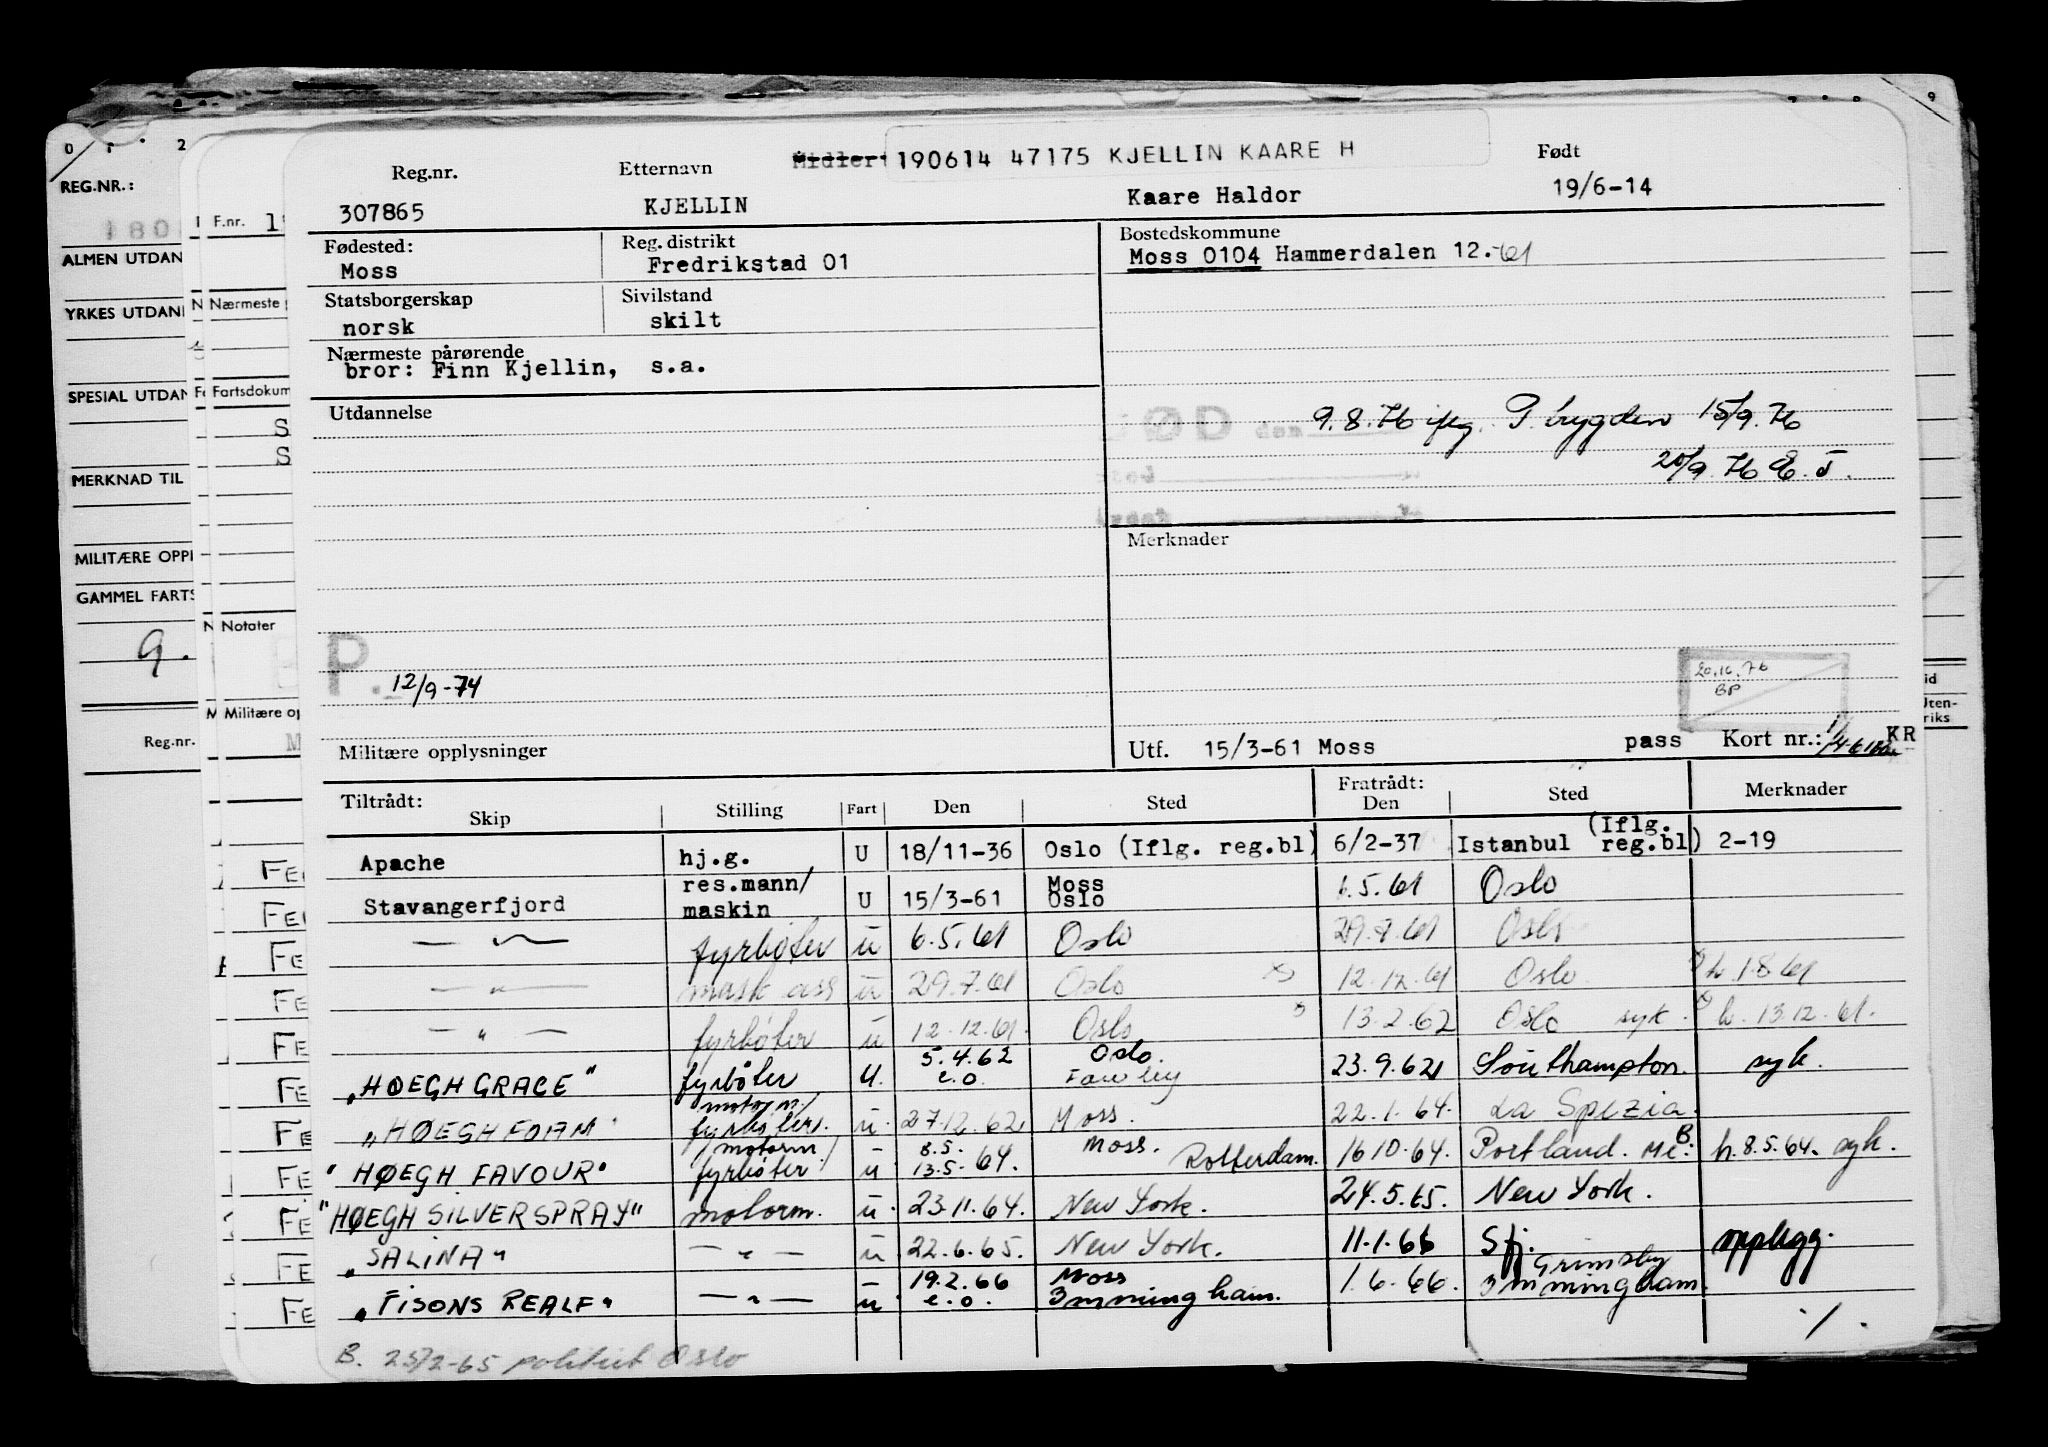 190614 47175 KJELLIN KAARE H
Reg.nr. Etternavn Midler. Født
307865 KJELLIN Kaare Haldor 19/6-14
Fødested: Reg. distrikt Bostedskommune
Moss Fredrikstad 01 Moss 0104 Hammerdalen 12.-61
Statsborgerskap Sivilstand
norsk skilt
Nærmeste pårørende
bror: Finn Kjellin, s.a.
Utdannelse
9.8.76 iflg. P. 15/9.76
20/9.76
Merknader
P. 12/9-74
20.10.76
BP
Militære opplysninger Utf. 15/3-61 Moss pass Kort nr.: KR
Tiltrådt: Fratrådt:
Skip Stilling Fart Den Sted Den Sted Merknader
Apache hj.g. U 18/11-36 Oslo (Iflg. reg.bl) 6/2-37 Istanbul (Iflg. reg.bl) 2-19
Stavangerfjord res.mann/ maskin U 15/3-61 Moss Oslo 6.5.61 Oslo
— " — fyrbøter u 6.5.61 Oslo 29.7.61 Oslo
— " — mask ass u 29.7.61 Oslo x) 12.12.61 Oslo x) h. 1.8.61
— " — fyrbøter u 12.12.61. Oslo x 13.2.62 Oslo syk. x) h. 13.12.61.
"HØEGH GRACE" fyrbøter u. 5.4.62 e.o. Oslo. Fawley 23.9.62 Southampton. syk.
"HØEGH FOAM" motorm./ fyrbøter. u. 27.12.62 Moss. 22.1.64. La Spezia.
"HØEGH FAVOUR" motorm./ fyrbøter u 8.5. 13.5.64. Moss. Rotterdam. 16.10.64. Portland. Me. B. h. 8.5.64. syk.
"HØEGH SILVERSPRAY" motorm. u. 23.11.64. New York. 24.5.65. New York.
"SALINA" — " — u 22.6.65. New York. 11.1.66 Sfj. opplegg.
"FISONS REALF" — " — u 19.2.66 e.o. Moss Immingham. 1.6.66. Grimsby Immingham.
./.
B. 23/2-65 politiet Oslo
REG.NR.:
ALMEN UTDAN
YRKES UTDAN
SPESIAL UTDAN
MERKNAD TIL
MILITÆRE OPPL
GAMMEL FARTS
9.
Reg.nr.
F.nr.
Nærmeste
Fartsdokum
Notater
Militære op